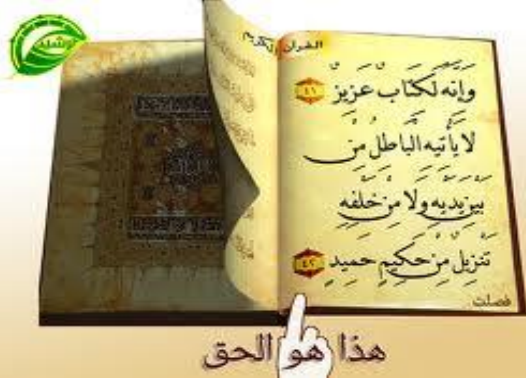 وشله
القرآن الكريم
وَإِنَّهُ لَكِتَابٌ عَزِيزٌ ٤١
لَا يَأْتِيهِ الْبَاطِلُ مِنْ
بَيْنِ يَدَيْهِ وَلَا مِنْ خَلْفِهِ
تَنْزِيلٌ مِنْ حَكِيمٍ حَمِيدٍ ٤٢
فصلت
هذا هو الحق